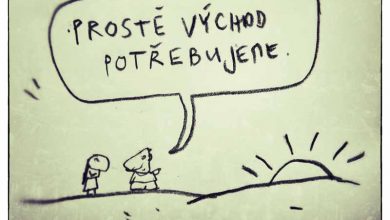 PROSTĚ VÝCHOD
POTŘEBUJEME.